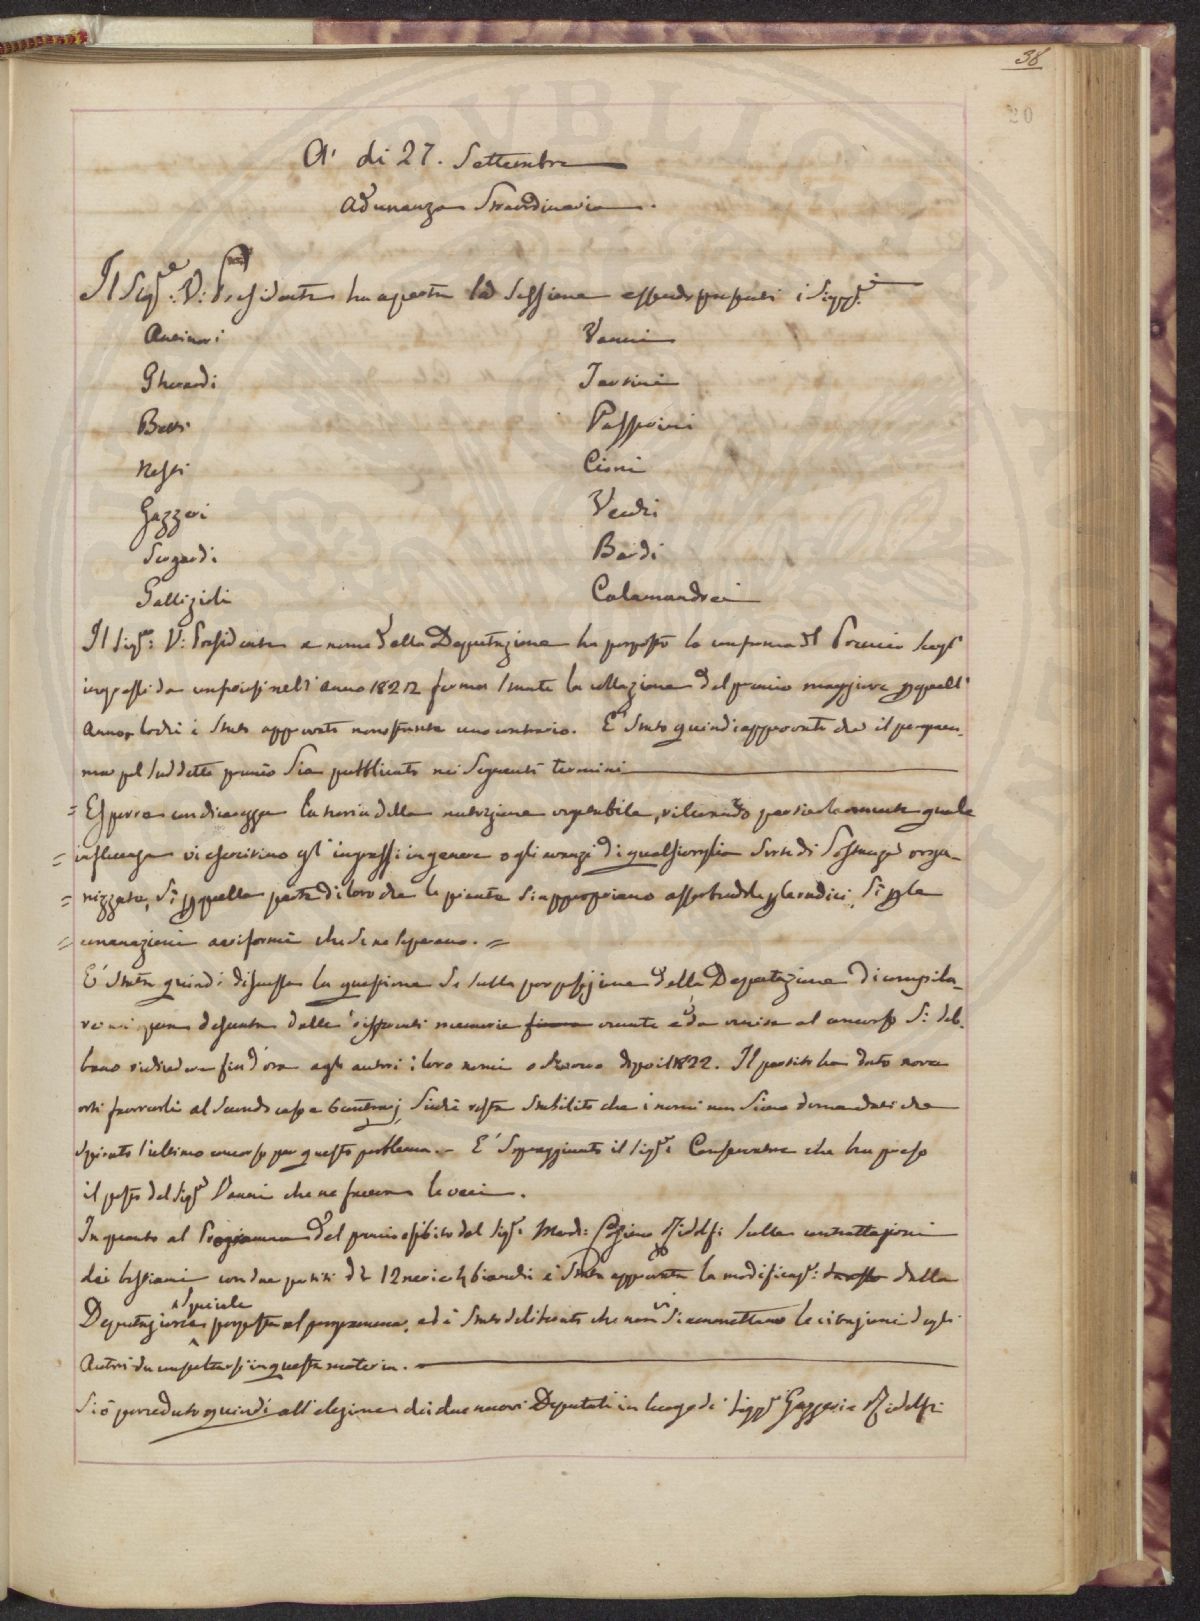 38
20
A' di 27. Settembre
Adunanza Straordinaria.
Il Sigre: V: Presidente ha aperta la Sessione essendo presenti i Sigg:ri
Antinori
Vanni
Gherardi
Tartini
Betti
Passerini
Nessi
Cioni
Gazzeri
Verdi
Sergardi
Bardi
Gallizioli
Calamandrei
Il Sigre: V: Presidente a nome della Deputazione ha proposto la conferma del Premio sugl'
ingrassi da conferirsi nell'anno 1822 ferma stante la collazione del premio maggiore per quell'
Anno, lo che è stato approvato nonostante uno contrario. E' stato quindi approvato che il program-
ma pel suddetto premio sia pubblicato nei seguenti termini
= Esporre con chiarezza la teoria della nutrizione vegetabile, rilevando particolarmente quale
= influenza vi esercitino gl'ingrassi in genere o gli avanzi di qualsivoglia sorte di sostanze orga-
= nizzate, sì per quella parte di loro che le piante si appropriano assorbendola per le radici, sì per le
= emanazioni aeriformi che se ne separano. =
E' stata quindi discussa la questione se sulla proposizione della Deputazione di compila-
re una delle differenti memorie venute e da venire al concorso si deb-
bano richiedere fin d'ora agli autori i loro nomi o dopo il 1822. Il partito ha dato nove
voti favorevoli al secondo caso e 6 contrarj, sicchè resta stabilito che i nomi non siano domandati che
spirato l'ultimo concorso per questo problema. - E' sopraggiunto il Sigre: Conservatore che ha preso
il posto del Sigre Vanni che ne faceva le veci.
In quanto al Programma del premio esibito dal Sigre: March: Cosimo Ridolfi sulle contrattazioni
dei bestiami con due partiti di 12 neri e 4 bianchi è stata approvata la modificaz: dalla
Deputazione speciale proposta al programma, ed è stato deliberato che non vi si ammettano le citazioni degli
Autori da consultarsi in questa materia.
Si è proceduto quindi all'elezione dei due nuovi Deputati in luogo de' Sigg:ri Gazzeri e Ridolfi